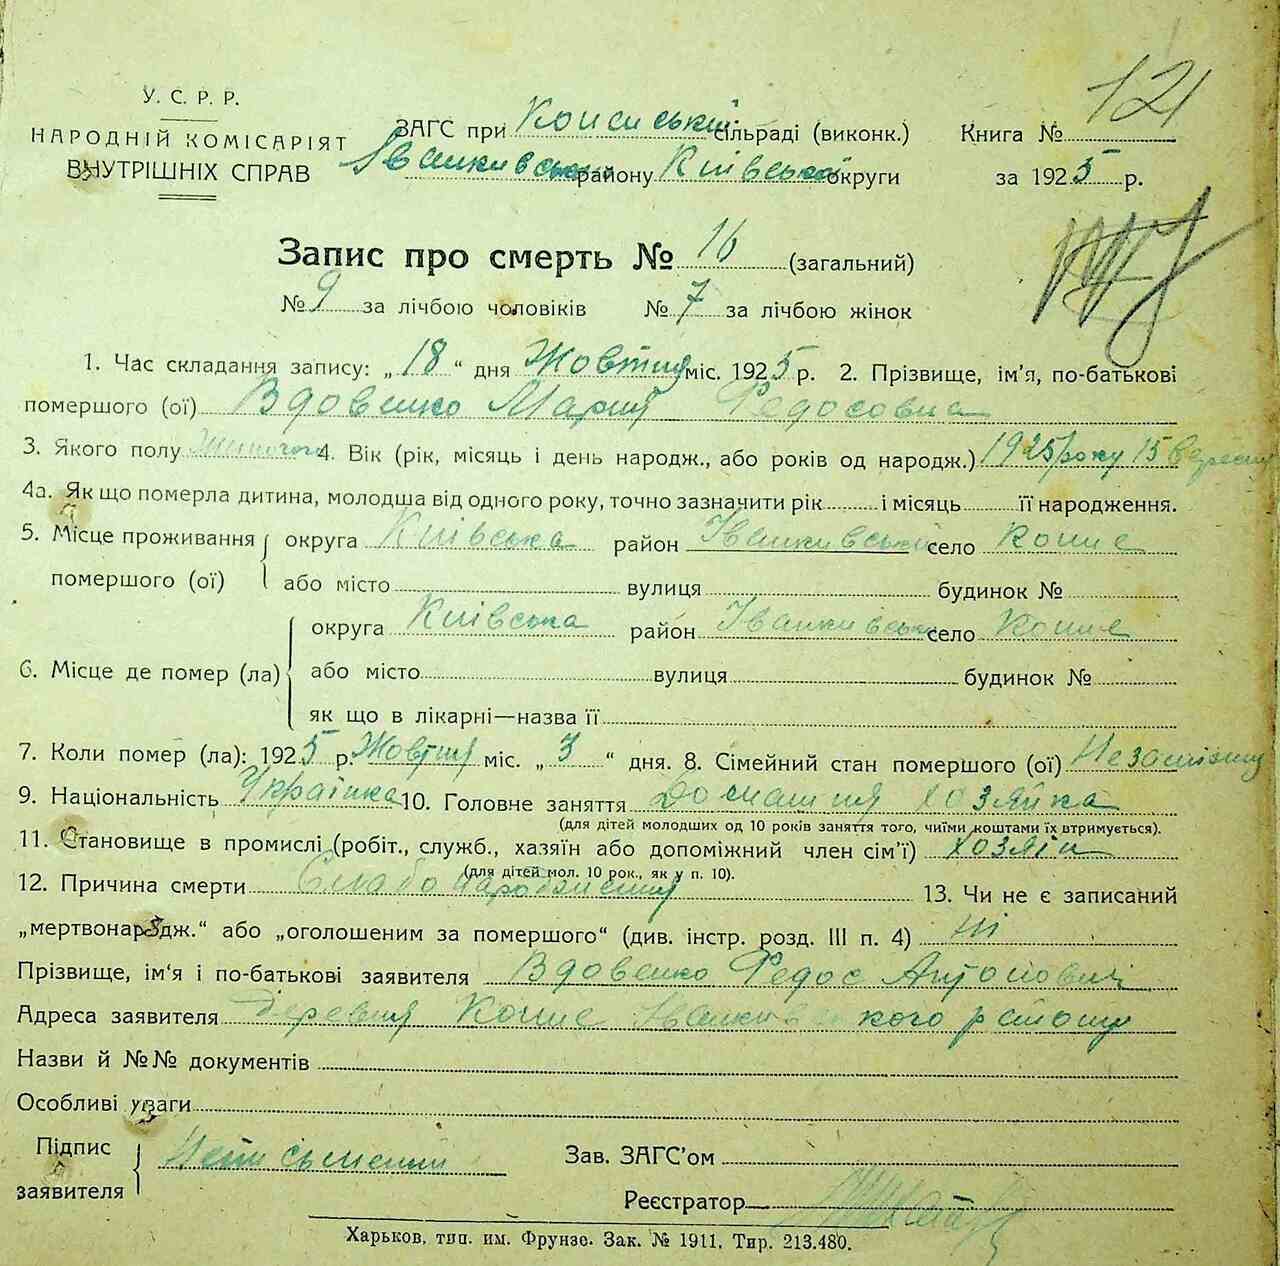 121
У. С. Р. Р.
НАРОДНІЙ КОМІСАРІЯТ
ВНУТРІШНІХ СПРАВ
ЗАГС при сільраді (виконк.) Книга №
Іванкивськ району Київська округи за 1925 р.
Запис про смерть № 16 (загальний)
№ 9 за лічбою чоловіків № 7 за лічбою жінок
1. Час складання запису: „18“ дня Жовтня міс. 1925 р. 2. Прізвище, ім'я, по-батькові
помершого (ої) Вдовенко Мария Федосовна
3. Якого полу Жиночого 4. Вік (рік, місяць і день народж., або років од народж.) 1925 року 15 вересня
4а. Як що померла дитина, молодша від одного року, точно зазначити рік і місяць її народження.
5. Місце проживання помершого (ої)
округа Київська район Іванкивськ село
або місто вулиця будинок №
6. Місце де помер (ла)
округа Київська район Іванкивськ село
або місто вулиця будинок №
як що в лікарні—назва її
7. Коли помер (ла): 1925 р. Жовтня міс. „3“ дня. 8. Сімейний стан помершого (ої)
9. Національність Українка 10. Головне заняття Домашня хозяйка
(для дітей молодших од 10 років заняття того, чиїми коштами їх втримується).
11. Становище в промислі (робіт., служб., хазяїн або допоміжний член сім'ї) хозяін
(для дітей мол. 10 рок., як у п. 10).
12. Причина смерти Слабо 13. Чи не є записаний
„мертвонародж.“ або „оголошеним за помершого“ (див. інстр. розд. III п. 4) ні
Прізвище, ім'я і по-батькові заявителя Вдовенко Федос Антонович
Адреса заявителя Деревня району
Назви й №№ документів
Особливі уваги
Підпис заявителя
Зав. ЗАГС'ом
Реєстратор
Харьков, тип. им. Фрунзе. Зак. № 1911, Тир. 213.480.